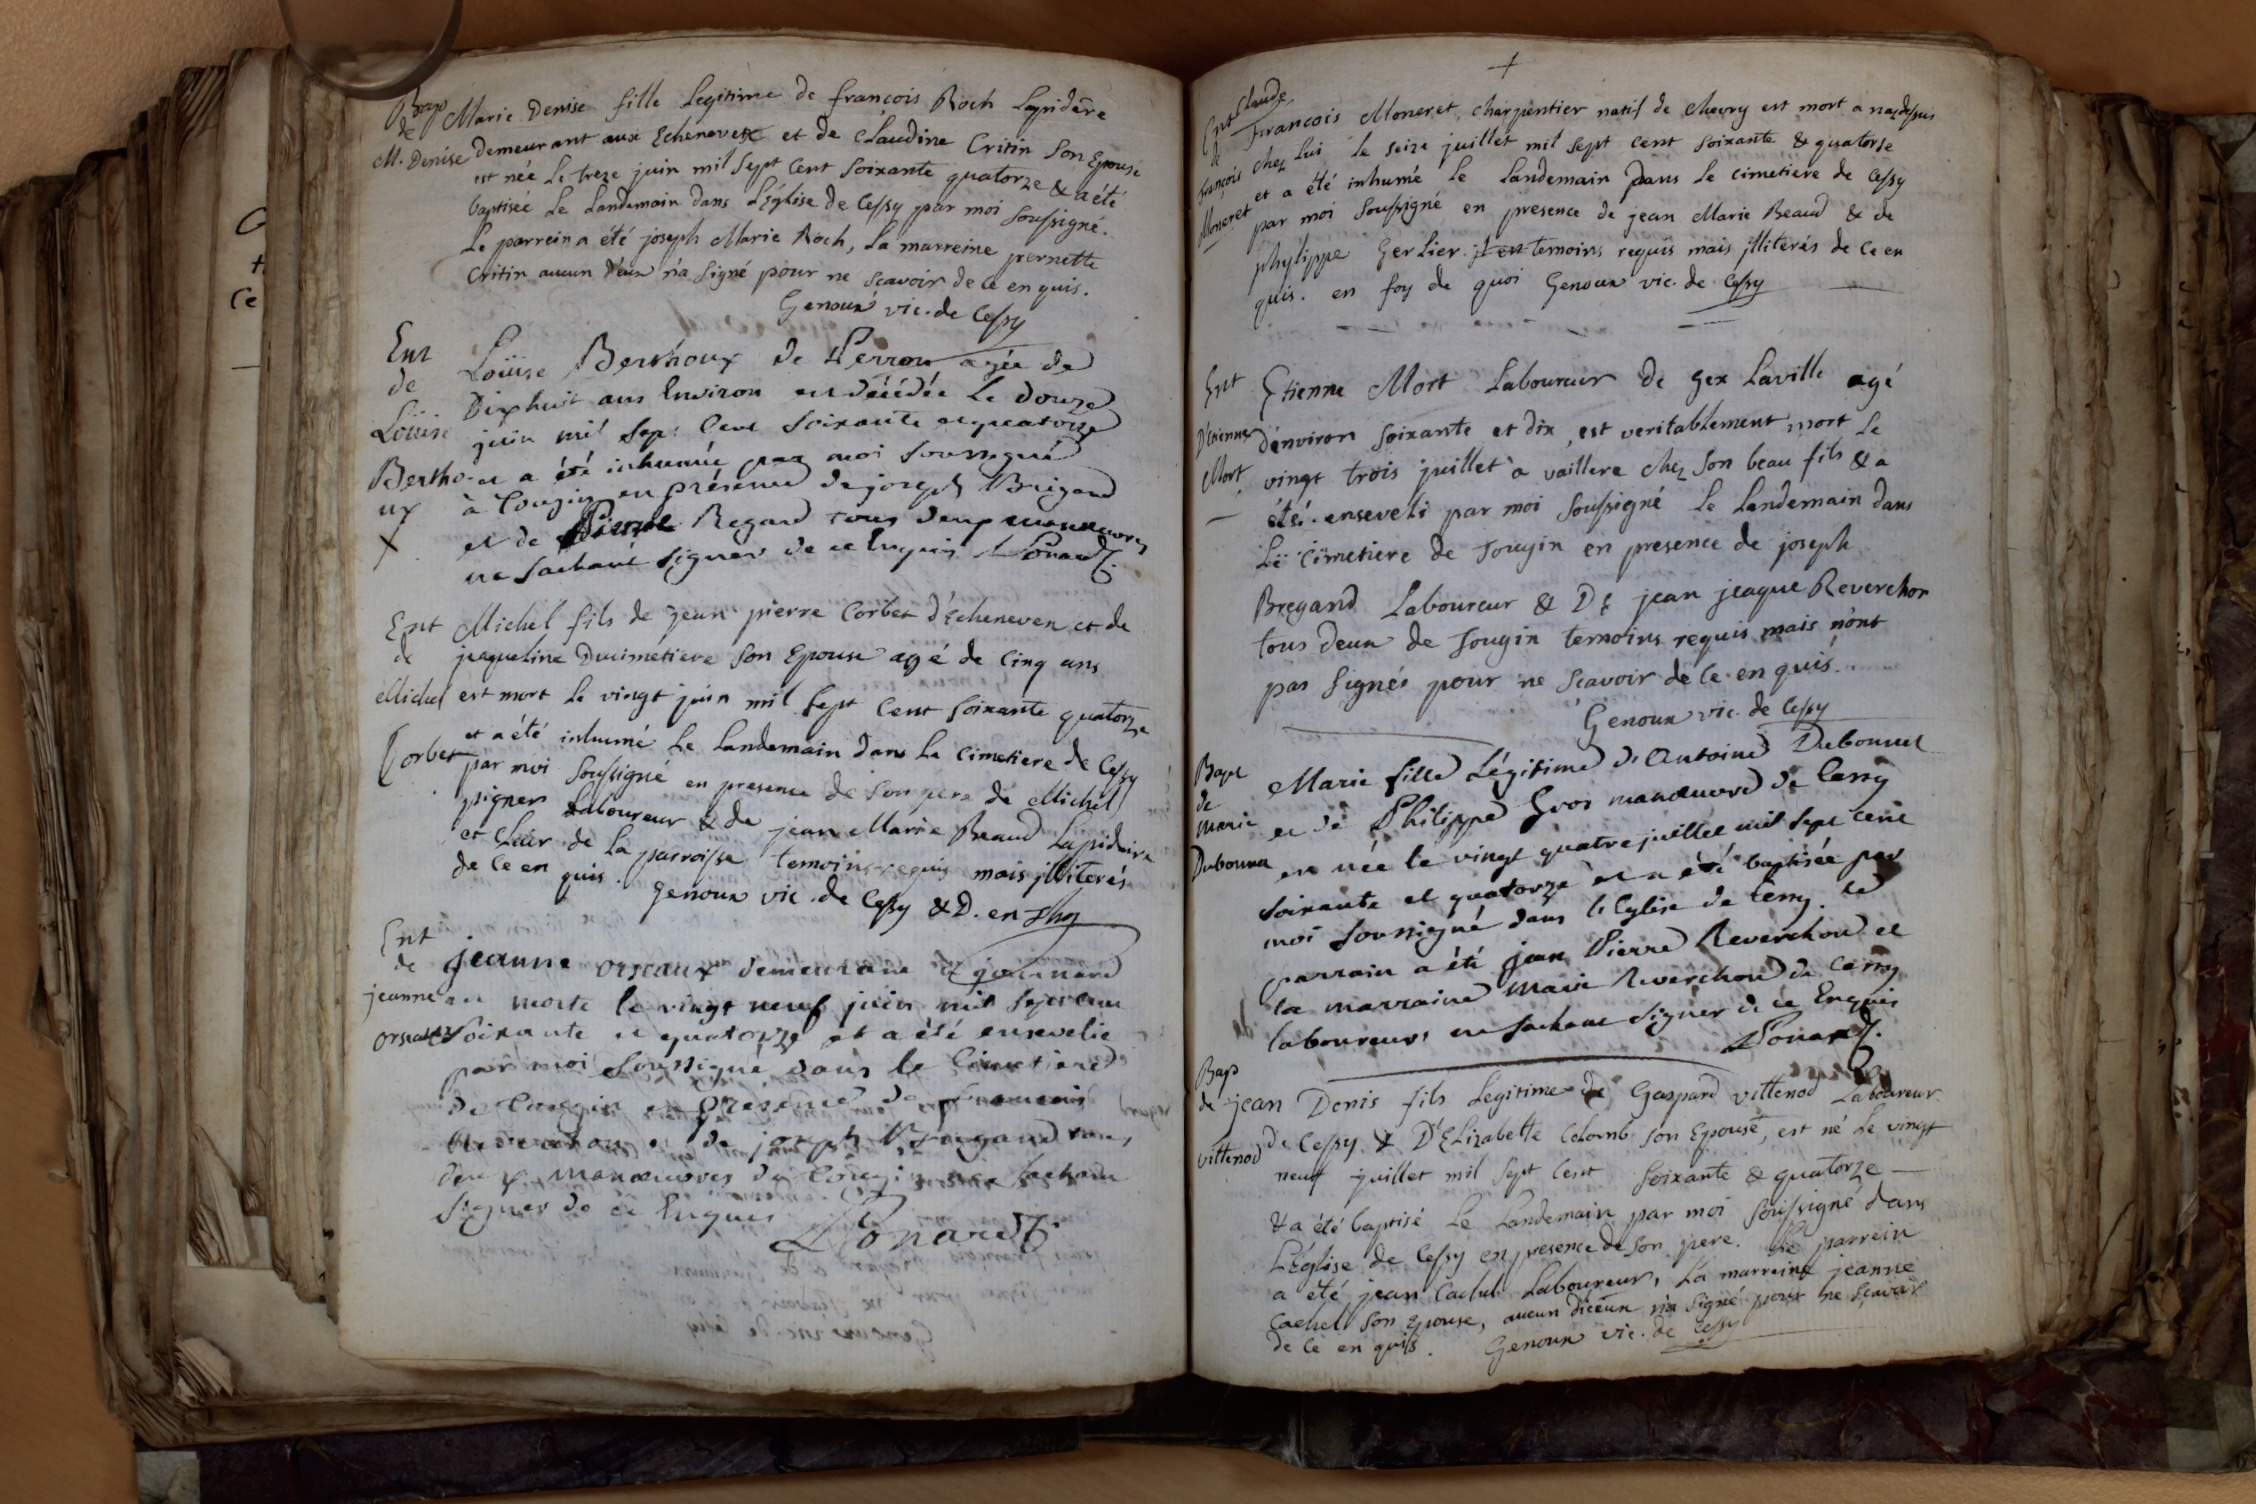 Bap
de
M. Denise
Marie Denise fille Legitime de francois Roch Lapidere
demeurant aux Echenevex et de Claudine Critin son Epouse
est née le treze juin mil sept cent soixante quatorze & a été
baptisée Le Landemain dans L'Eglise de Cessy par moi soussigné.
Le parrein a été joseph Marie Roch, La marreine pernette
Critin aucun d'eux n'a signé pour ne scavoir de ce en quis.
Genoux vic. de Cessy
Ent
de
Loüise
Bertho-
ux
Loüise Berthoux de Perron agée de
Dixhuit ans Environ est décédée Le douze
juin mil sept Cent soixante et quatorze
et a été inhumée par moi soussigné
à Tougin en présence de joseph Brigand
et de Pierre Regard tous deux manœuvres
ne sachant signer de ce Enquis
Ent
de
Michel
Corbet
Michel fils de jean pierre Corbet d'Echeneven et de
jaqueline Ducimetiere son Epouse agé de Cinq ans
est mort Le vingt juin mil sept cent soixante quatorze
et a été inhumé Le Landemain dans Le Cimetiere de Cessy
par moi soussigné en presence de son pere de Michel
pigner Laboureur & de jean Marie Beaud Lapidaire
et Clair de La parroisse temoins requis mais jlliterés
de Ce en quis. Genoux vic. de Cessy & D. en Thg
Ent
de
jeanne
orseaux
jeanne orseaux demeurant
est morte le vingt neuf juin mil sept cent
soixante et quatorze et a été ensevelie
par moi soussigné dans le Cimetiere
de Tougin en présence de francois
Reverchon et de joseph Brigand tous
deux manœuvres de Tougin ne sachant
signer de ce Enquis
+
Ent Claude
de
françois
Moneret
Francois Moneret, charpentier natif de Chevry est mort a
chez Lui le seize juillet mil sept cent soixante & quatorse
et a été inhumé Le Landemain Dans Le cimetiere de Cessy
par moi soussigné en presence de jean Marie Beaud & de
phylippe Gerlier. temoins requis mais jlliterés de Ce en
quis. en foy de quoi Genoux vic. de Cessy
Ent
D'Etienne
Mort
Etienne Mort Laboureur de Gex Laville agé
d'environ soixante et dix, est veritablement mort Le
vingt trois juillet a vaillere chez son beau fils & a
été enseveli par moi soussigné Le Landemain dans
Le Cimetiere de Tougin en presence de joseph
Bregand Laboureur & De jean jeaque Reverchon
tous deux de Tougin temoins requis mais n'ont
pas signés pour ne scavoir de Ce en quis.
Genoux vic. de Cessy
Bapt
de
Marie
Dubouner
Marie fille Légitime d'Antoine
et de Philippe Gros manœuvre de Cessy
est née le vingt quatre juillet mil sept cent
soixante et quatorze et a été baptisée par
moi soussigné dans l'Eglise de Cessy. le
parrain a été jean Pierre Reverchon et
la marraine Marie Reverchon de Cessy
laboureurs ne sachant signer de ce Enquis
Bap
de
vittenod
jean Denis fils Legitime de Gaspard vittenod Laboureur
de Cessy & D'Elizabette Colomb son Epouse, est né Le vingt
neuf juillet mil sept Cent soixante & quatorze
& a été baptisé Le Landemain par moi soussigné dans
L'Eglise de Cessy en presence de son pere. Le parrein
a été jean Laboureur, La marreine jeanne
son Epouse, aucun diceux n'a signé pour ne scavoir
de Ce en quis. Genoux vic. de Cessy